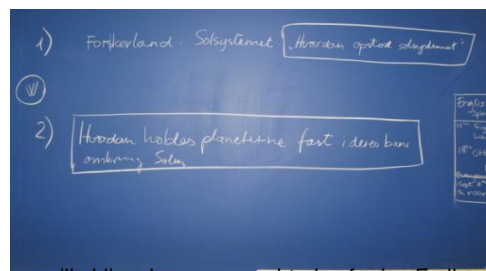 1) Forskerland. Solsystemet "Hvordan opstod solsystemet"
W
2) Hvordan holdes planeterne fast i deres bane
omkring Solen
Englis